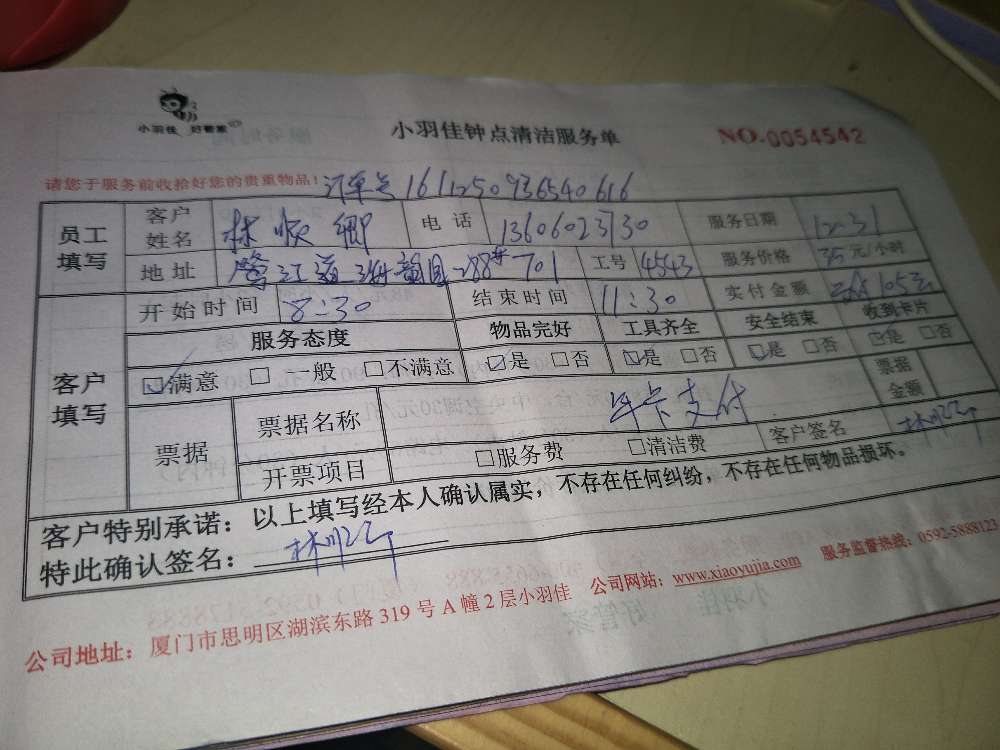 小羽佳 好管家
小羽佳钟点清洁服务单
NO.0054542
请您于服务前收拾好您的贵重物品！ 订单号 1611250936540616
员工填写 客户姓名 林顺卿 电话 13606023730 服务日期 12-31
地址 鹭江道海韵园288# 701 工号 4543 服务价格 35元/小时
开始时间 8:30 结束时间 11:30 实付金额 105元
客户填写 服务态度 物品完好 工具齐全 安全结束 收到卡片
☑满意 □一般 □不满意 ☑是 □否 ☑是 □否 ☑是 □否 ☑是 □否
票据 票据名称 年卡支付 票据金额
开票项目 □服务费 □清洁费 客户签名
客户特别承诺：以上填写经本人确认属实，不存在任何纠纷，不存在任何物品损坏。
特此确认签名：
公司地址：厦门市思明区湖滨东路 319 号 A 幢 2 层小羽佳 公司网站：www.xiaoyujia.com 服务监督热线：0592-5888123